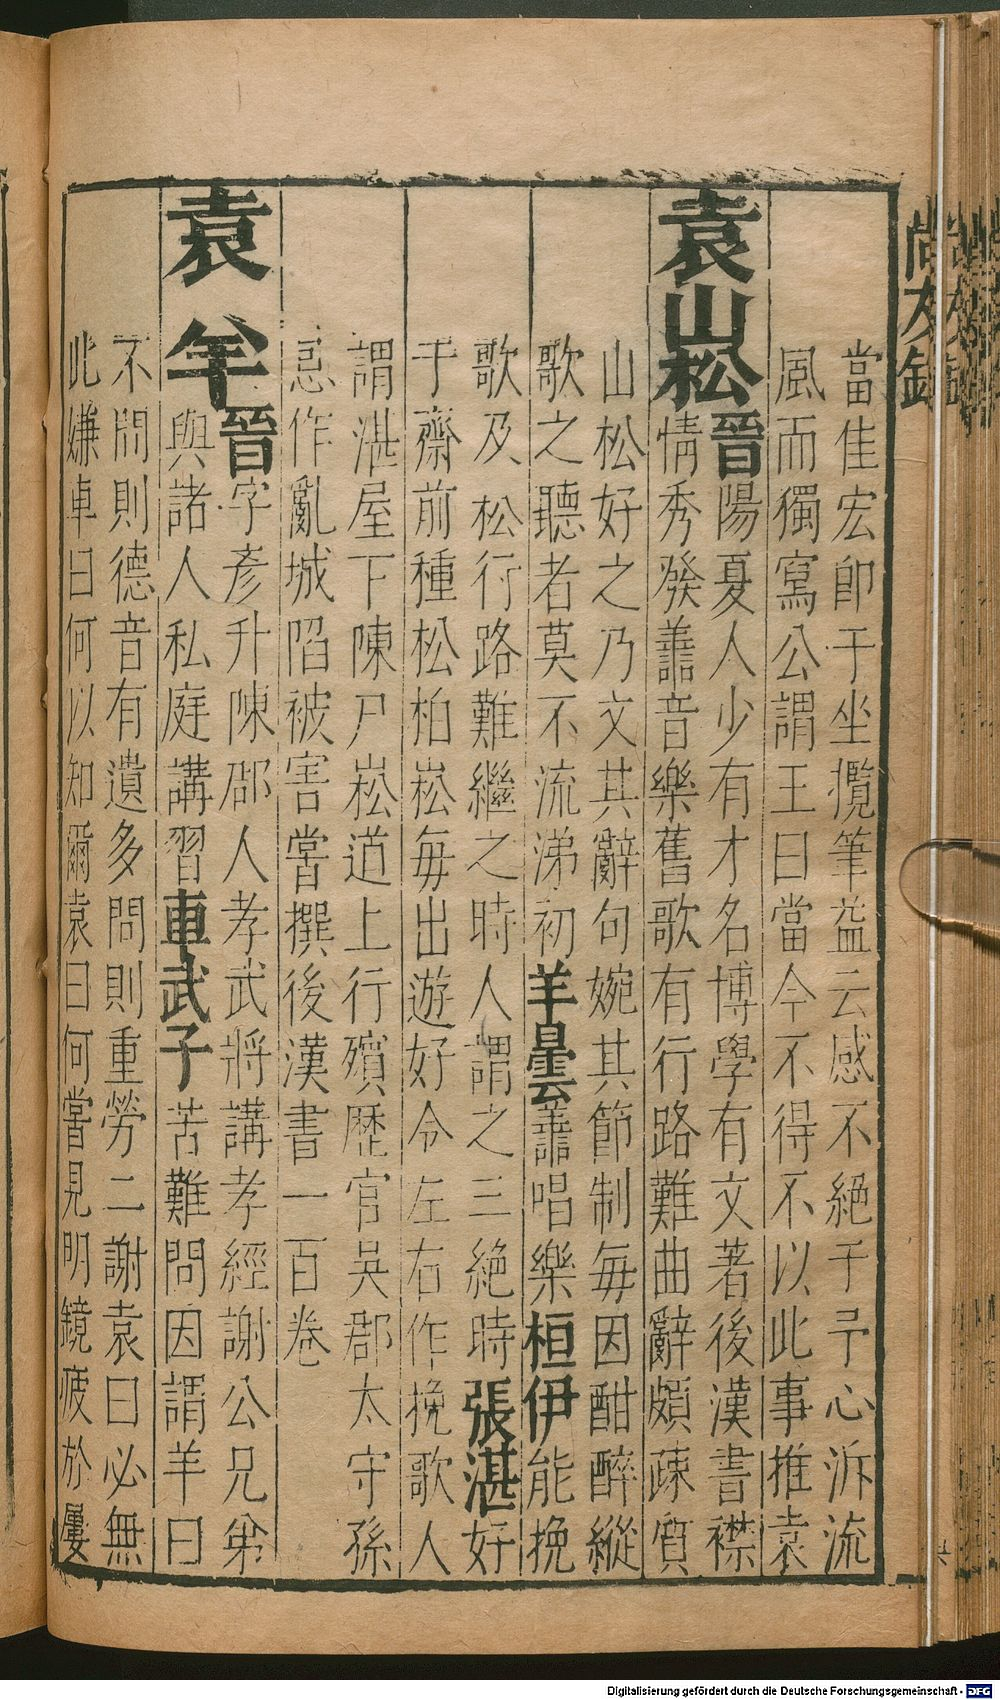 當佳宏卽于坐攬筆益云感不絶于予心泝流
風而獨寫公謂王曰當今不得不以此事推袁
袁山松
晉陽夏人少有才名博學有文著後漢書襟
情秀發譱音樂舊歌有行路難曲辭頗疎質
山松好之乃文其辭句婉其節制每因酣醉縱
歌之聽者莫不流涕初羊曇譱唱樂桓伊能挽
歌及松行路難繼之時人謂之三絶時張湛好
于齋前種松柏崧每出遊好令左右作挽歌人
謂湛屋下陳尸崧道上行殯歷官吳郡太守孫
恩作亂城陷被害嘗撰後漢書一百卷
袁
晉字彥升陳郡人孝武將講孝經謝公兄弟
與諸人私庭講習車武子苦難問因謂羊曰
不問則德音有遺多問則重勞二謝袁曰必無
此嫌車曰何以知爾袁曰何嘗見明鏡疲於屢
尚友錄
Digitalisierung gefördert durch die Deutsche Forschungsgemeinschaft - DFG